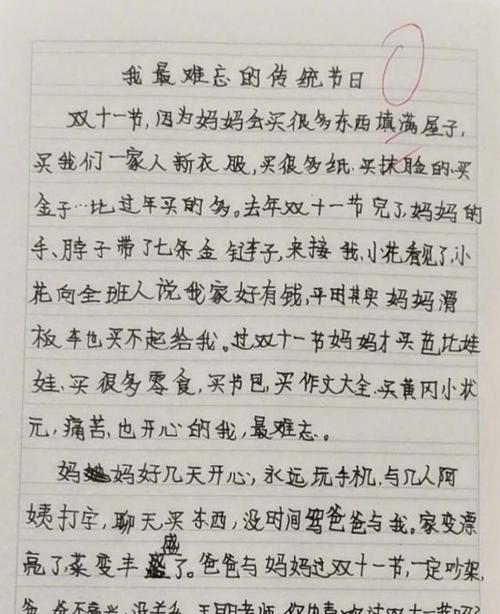 我最难忘的传统节日
双十一节,因为妈妈会买很多东西填满屋子,
买我们一家人新衣服,买很多纸.买抹脸的.买
金子…比过年买的多。去年双十一节完了,妈妈的
手、脖子带了七条金钉李子,来接我,小花看见了,小
花向全班人说我家好有钱,平时其实妈妈滑
板车也买不起给我。过双十一节妈妈才买芭比娃
娃、买很多零食,买书包,买作文大全.买黄冈小状
元,痛苦、也开心的我,最难忘。
妈妈好几天开心,永远玩手机,与几人阿
姨打字,聊天买东西,没时间骂爸爸与我。家变漂
亮了,菜变丰盛了。爸爸与妈妈过双十一节,一定吵架,